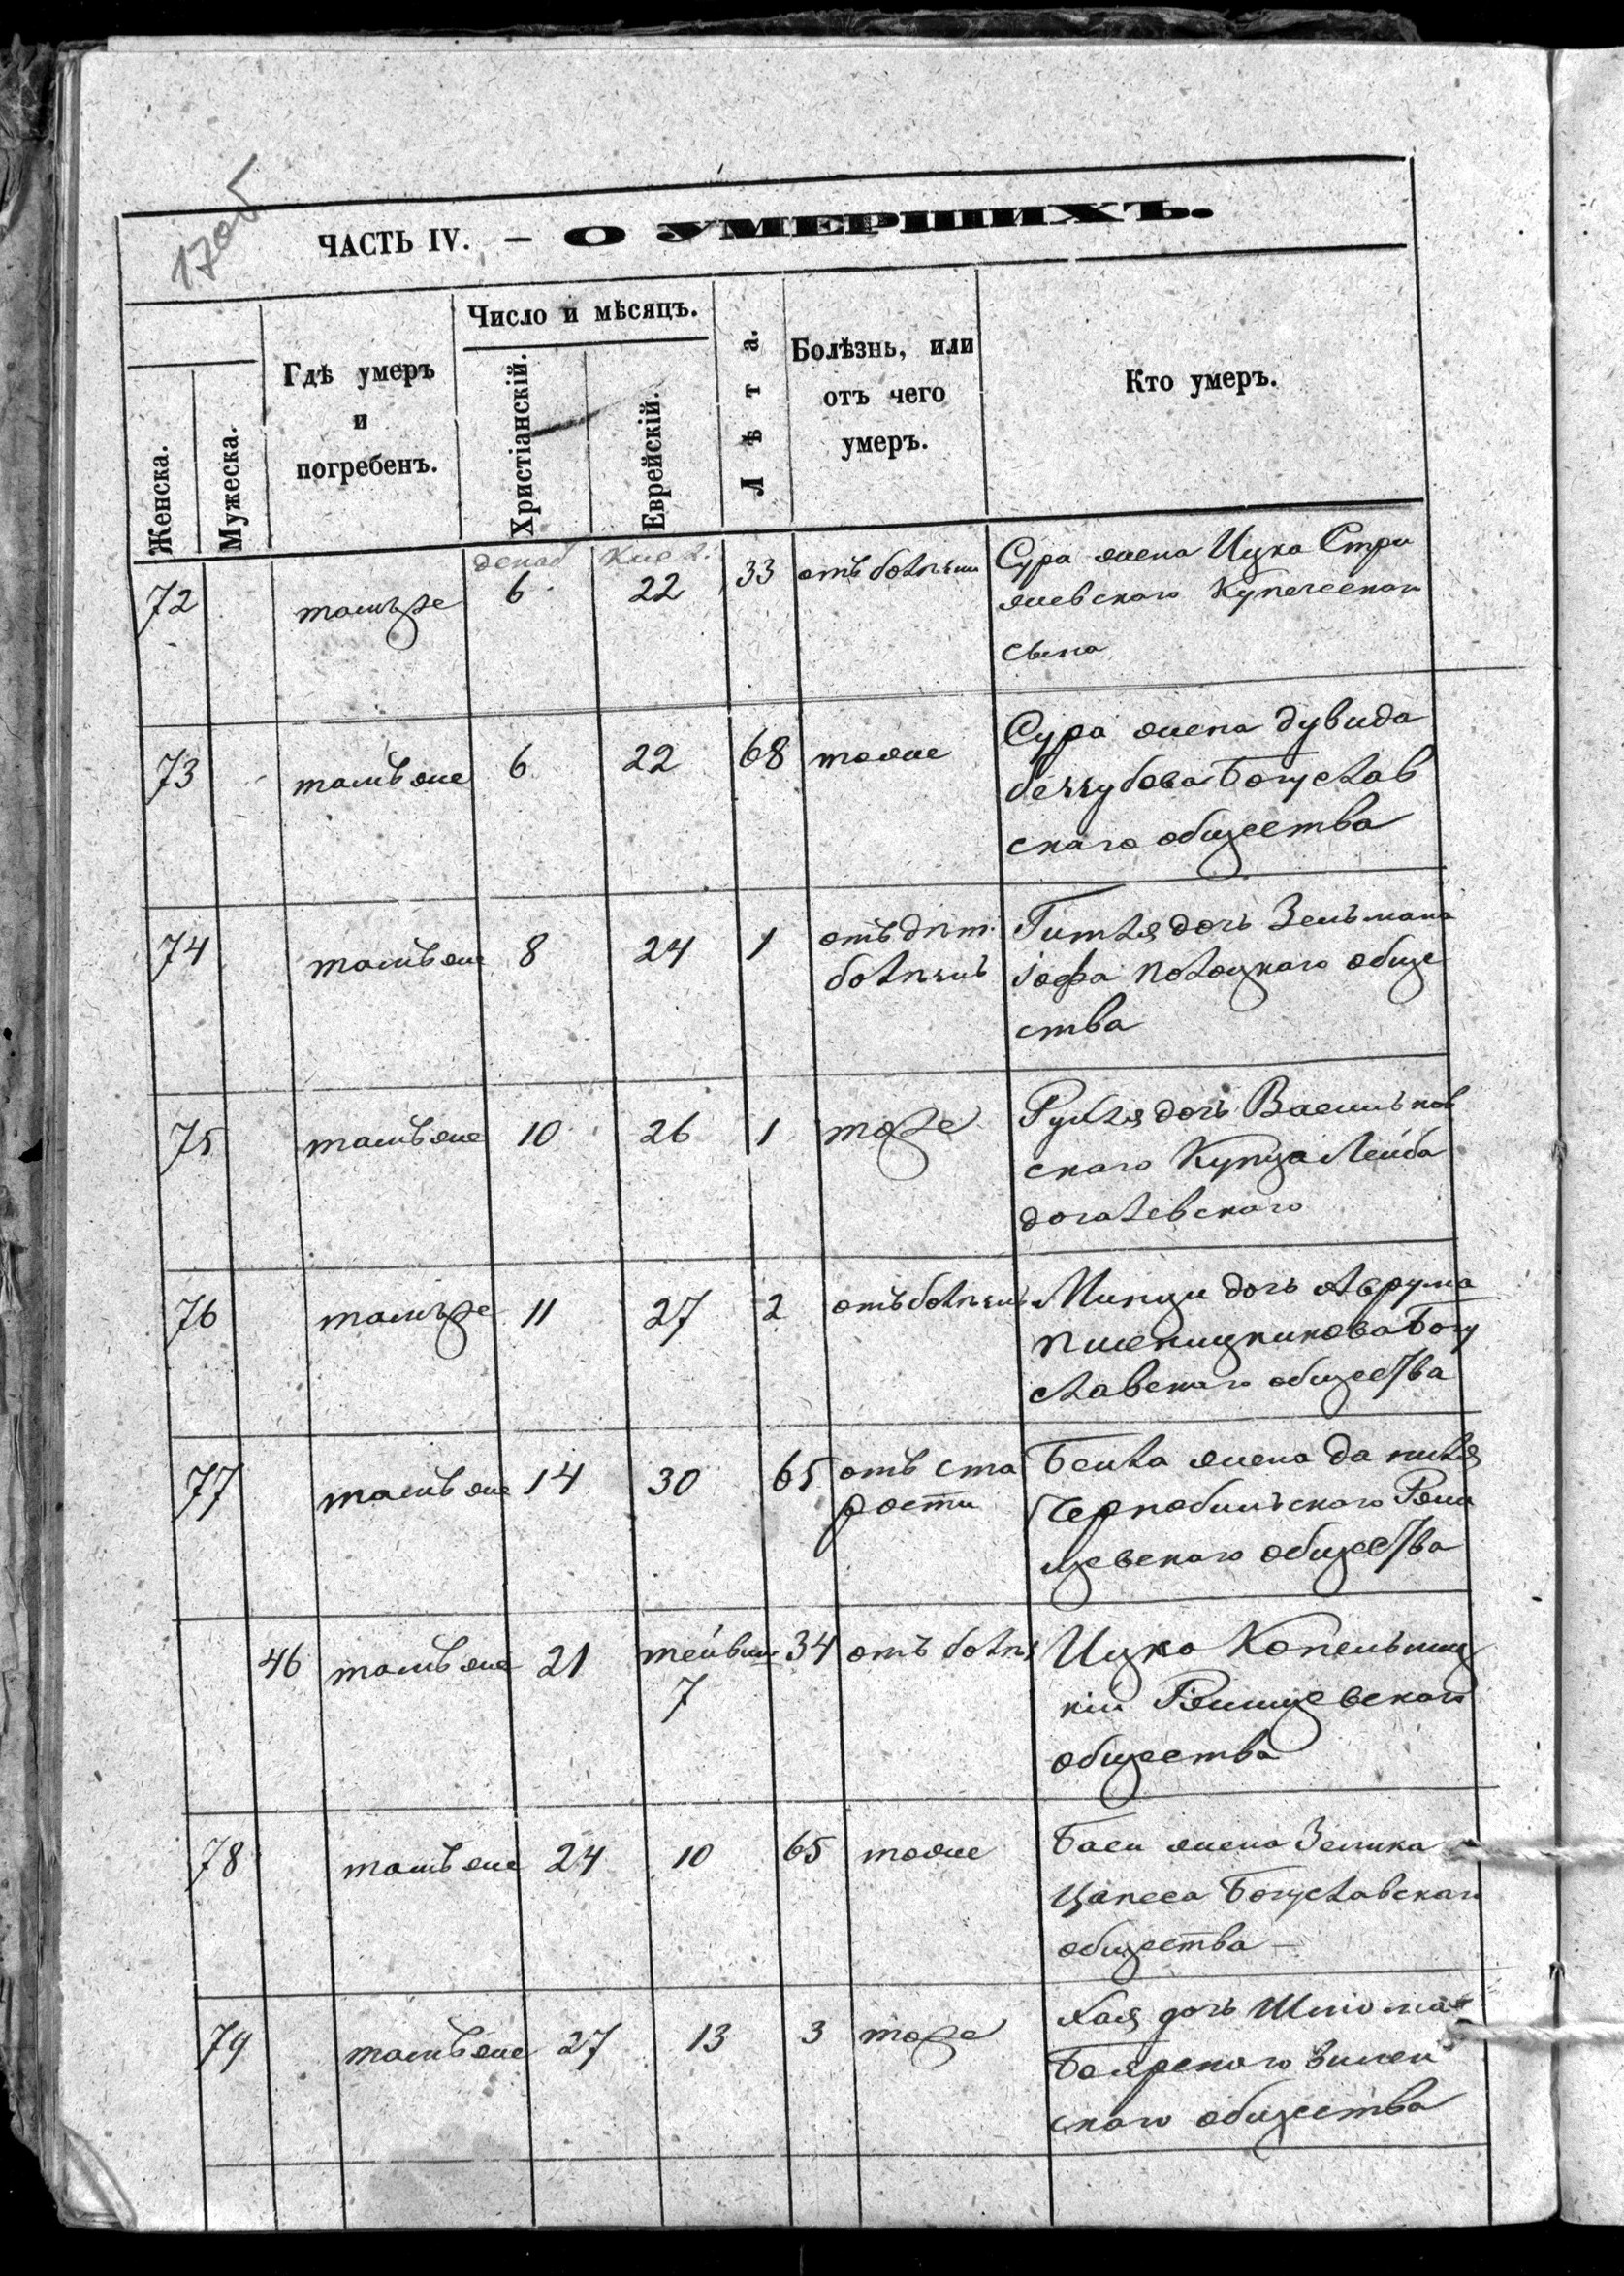 170об
ЧАСТЬ IV. — О УМЕРШИХЪ.
Женска.
Мужеска.
Гдѣ умеръ
и
погребенъ.
Число и мѣсяцъ.
Христіанскій.
Еврейскій.
Лѣта.
Болѣзнь, или
отъ чего
умеръ.
Кто умеръ.
72 тамъже декаб 6 Кис 22 33 отъ болѣзни Сура жена Ицка Стри
жевскаго Купеческаго
сына
73 тамъ же 6 22 68 тоже Сура жена Дувида
беззубова Богуслав
скаго общества
74 тамъ же 8 24 1 отъ дѣт. Гитля дочь Зельмана
болѣзнь іофа полоцкаго обще
ства
75 тамъ же 10 26 1 тоже Рухля дочь Васильков
скаго Купца Лейба
догалевскаго
76 тамъже 11 27 2 отъ болѣзнь Минци дочь Аврума
пшеницникова Богу
славскаго общества
77 тамъ же 14 30 65 отъ ста Бейла жена Даниля
рости Чернобильскаго Ржи
щевскаго общества
46 тамъ же 21 тейвис 34 отъ болѣз Ицко Копельниц
7 кій Ржищевскаго
общества
78 тамъ же 24 10 65 тоже Баси жена Зелика
Цапеса Богуславскаго
общества —
79 тамъ же 27 13 3 тоже Хая дочь Шлюма
Боярскаго Вилен
скаго общества